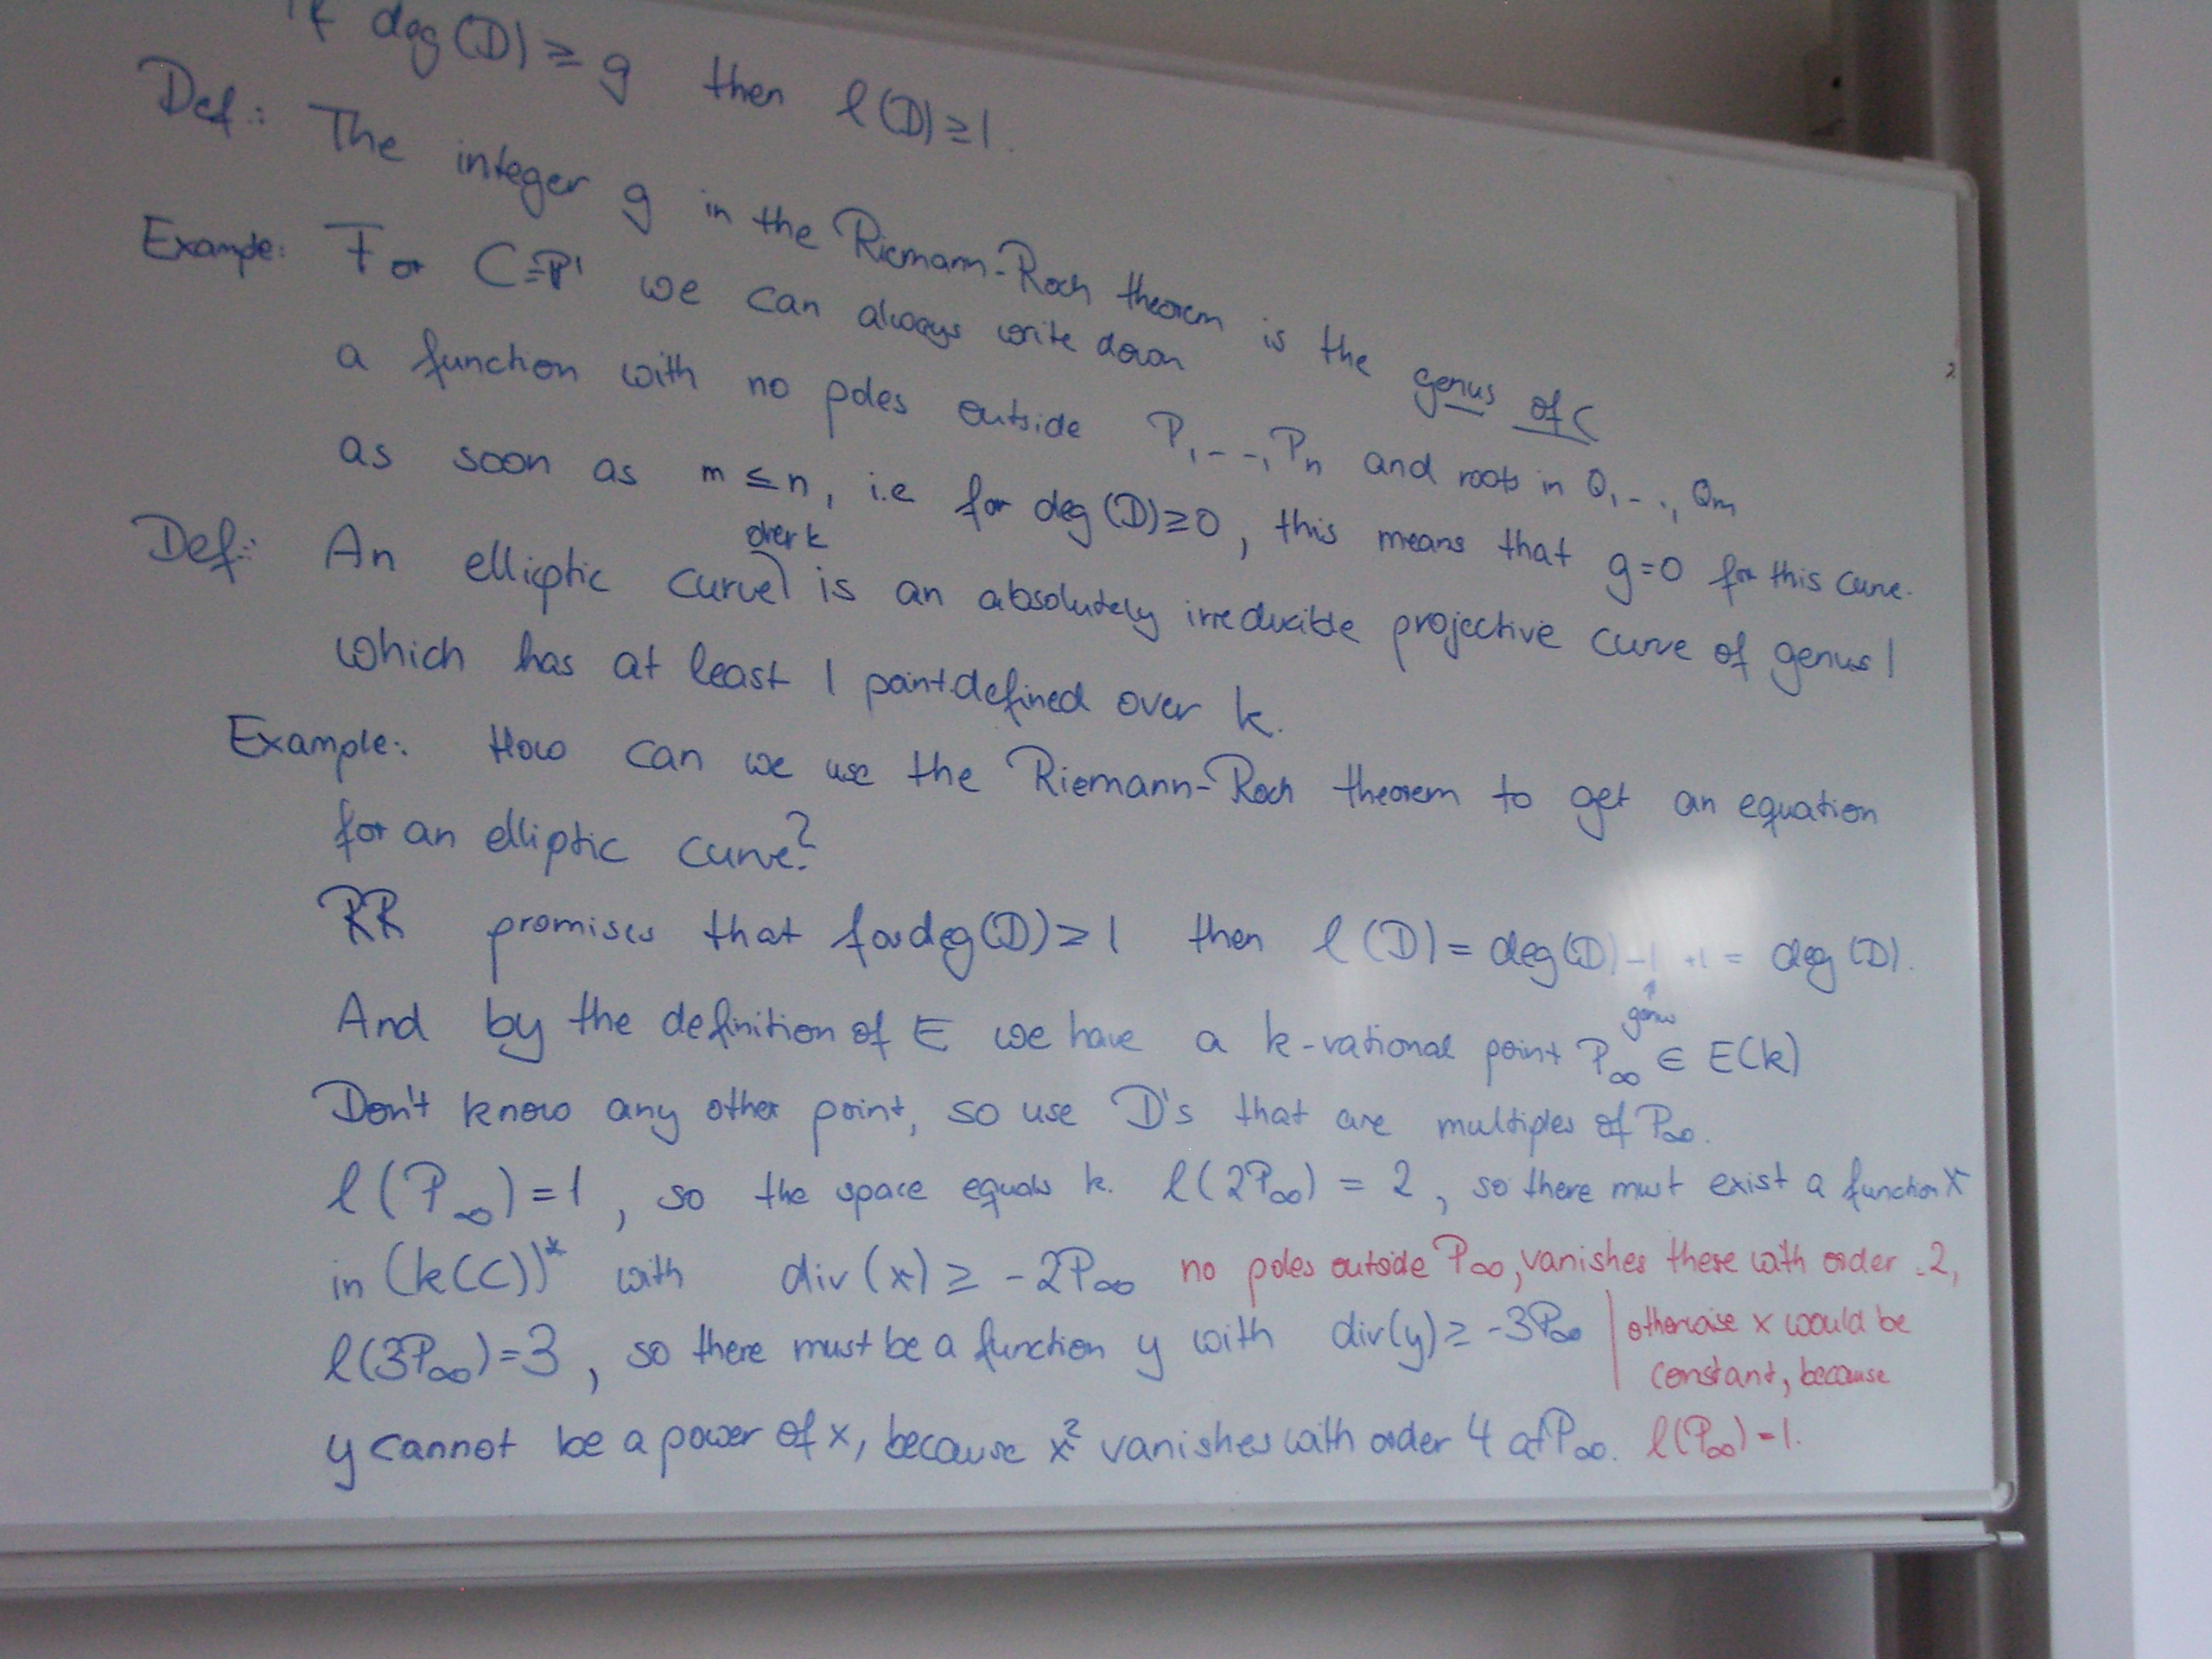 If deg(D) ≥ g then l(D) ≥ 1.
Def.: The integer g in the Riemann-Roch theorem is the genus of C
Example: For C=P¹ we can always write down
a function with no poles outside P₁,--,Pₙ and roots in Q₁,..,Qₘ
as soon as m ≤ n, i.e for deg(D)≥0, this means that g=0 for this curve.
Def.: An elliptic curve over k is an absolutely irreducible projective curve of genus 1
which has at least 1 point defined over k.
Example: How can we use the Riemann-Roch theorem to get an equation
for an elliptic curve?
RR promises that for deg(D)≥1 then l(D) = deg(D) -1 +1 = deg(D).
↑ genus
And by the definition of E we have a k-rational point P∞ ∈ E(k)
Don't know any other point, so use D's that are multiples of P∞.
l(P∞)=1, so the space equals k. l(2P∞) = 2, so there must exist a function x
in (k(C))* with div(x) ≥ -2P∞ no poles outside P∞, vanishes there with order -2,
l(3P∞)=3, so there must be a function y with div(y) ≥ -3P∞ | otherwise x would be
constant, because
y cannot be a power of x, because x² vanishes with order 4 at P∞. l(P∞)=1.